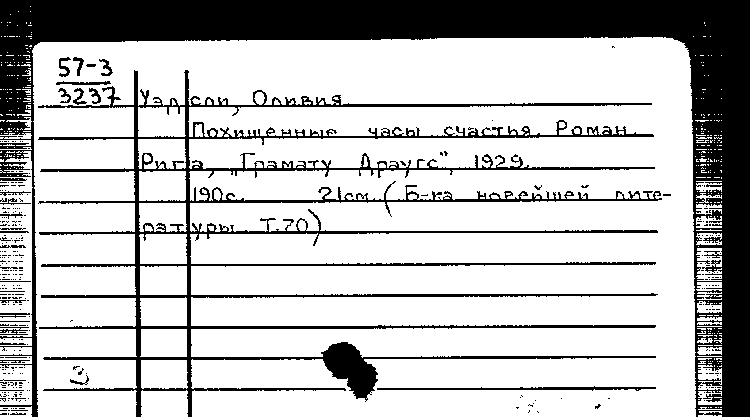 57-3
3237
Уэдсли, Оливия.
Похищенные часы счастья. Роман.
Рига, „Грамату Драугс", 1929.
190с. 21см. (Б-ка новейшей лите-
ратуры. Т.70)
3